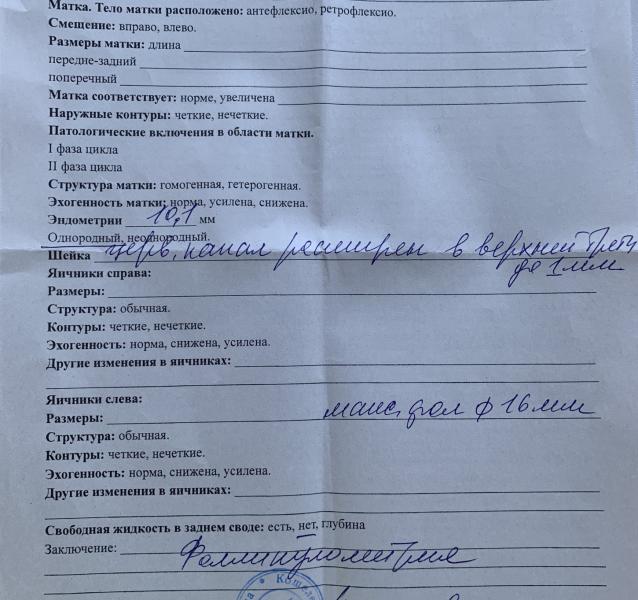 Матка. Тело матки расположено: антефлексио, ретрофлексио.
Смещение: вправо, влево.
Размеры матки: длина
передне-задний
поперечный
Матка соответствует: норме, увеличена
Наружные контуры: четкие, нечеткие.
Патологические включения в области матки.
I фаза цикла
II фаза цикла
Структура матки: гомогенная, гетерогенная.
Эхогенность матки: норма, усилена, снижена.
Эндометрии 10,1 мм
Однородный, неоднородный.
Шейка церв. канал расширен в верхней трети
до 1 мм
Яичники справа:
Размеры:
Структура: обычная.
Контуры: четкие, нечеткие.
Эхогенность: норма, снижена, усилена.
Другие изменения в яичниках:
Яичники слева:
Размеры: макс. фол ф 16 мм
Структура: обычная.
Контуры: четкие, нечеткие.
Эхогенность: норма, снижена, усилена.
Другие изменения в яичниках:
Свободная жидкость в заднем своде: есть, нет, глубина
Заключение: Фолликулометрия